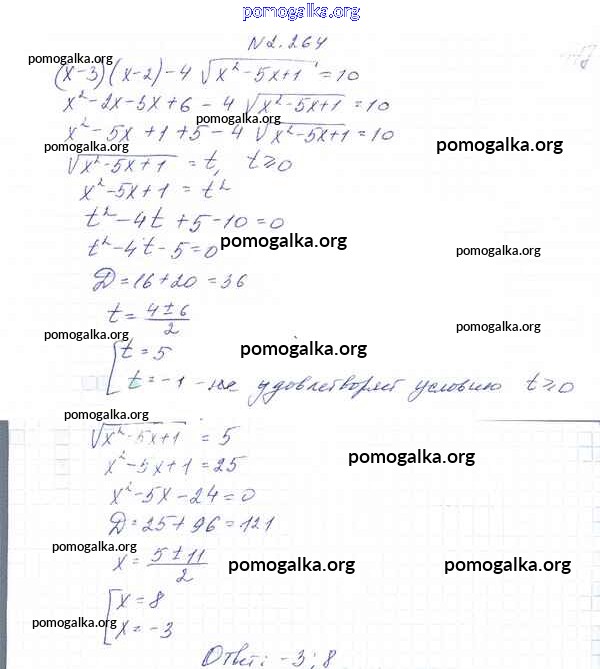 pomogalka.org
N 2.264
pomogalka.org
(x-3)(x-2)-4 √(x²-5x+1) = 10
x²-2x-3x+6-4 √(x²-5x+1) = 10
pomogalka.org
x²-5x+1+5-4 √(x²-5x+1) = 10
pomogalka.org
pomogalka.org
√(x²-5x+1) = t, t⩾0
x²-5x+1 = t²
t²-4t+5-10=0
pomogalka.org
t²-4t-5=0
pomogalka.org
D=16+20=36
t= (4±6)/2
pomogalka.org
pomogalka.org
pomogalka.org
[ t=5
t=-1 - не удовлетворяет условию t⩾0
pomogalka.org
√(x²-5x+1) = 5
pomogalka.org
x²-5x+1=25
x²-5x-24=0
D=25+96=121
pomogalka.org
x= (5±11)/2
pomogalka.org
pomogalka.org
[ x=8
pomogalka.org
x=-3
Ответ: -3; 8